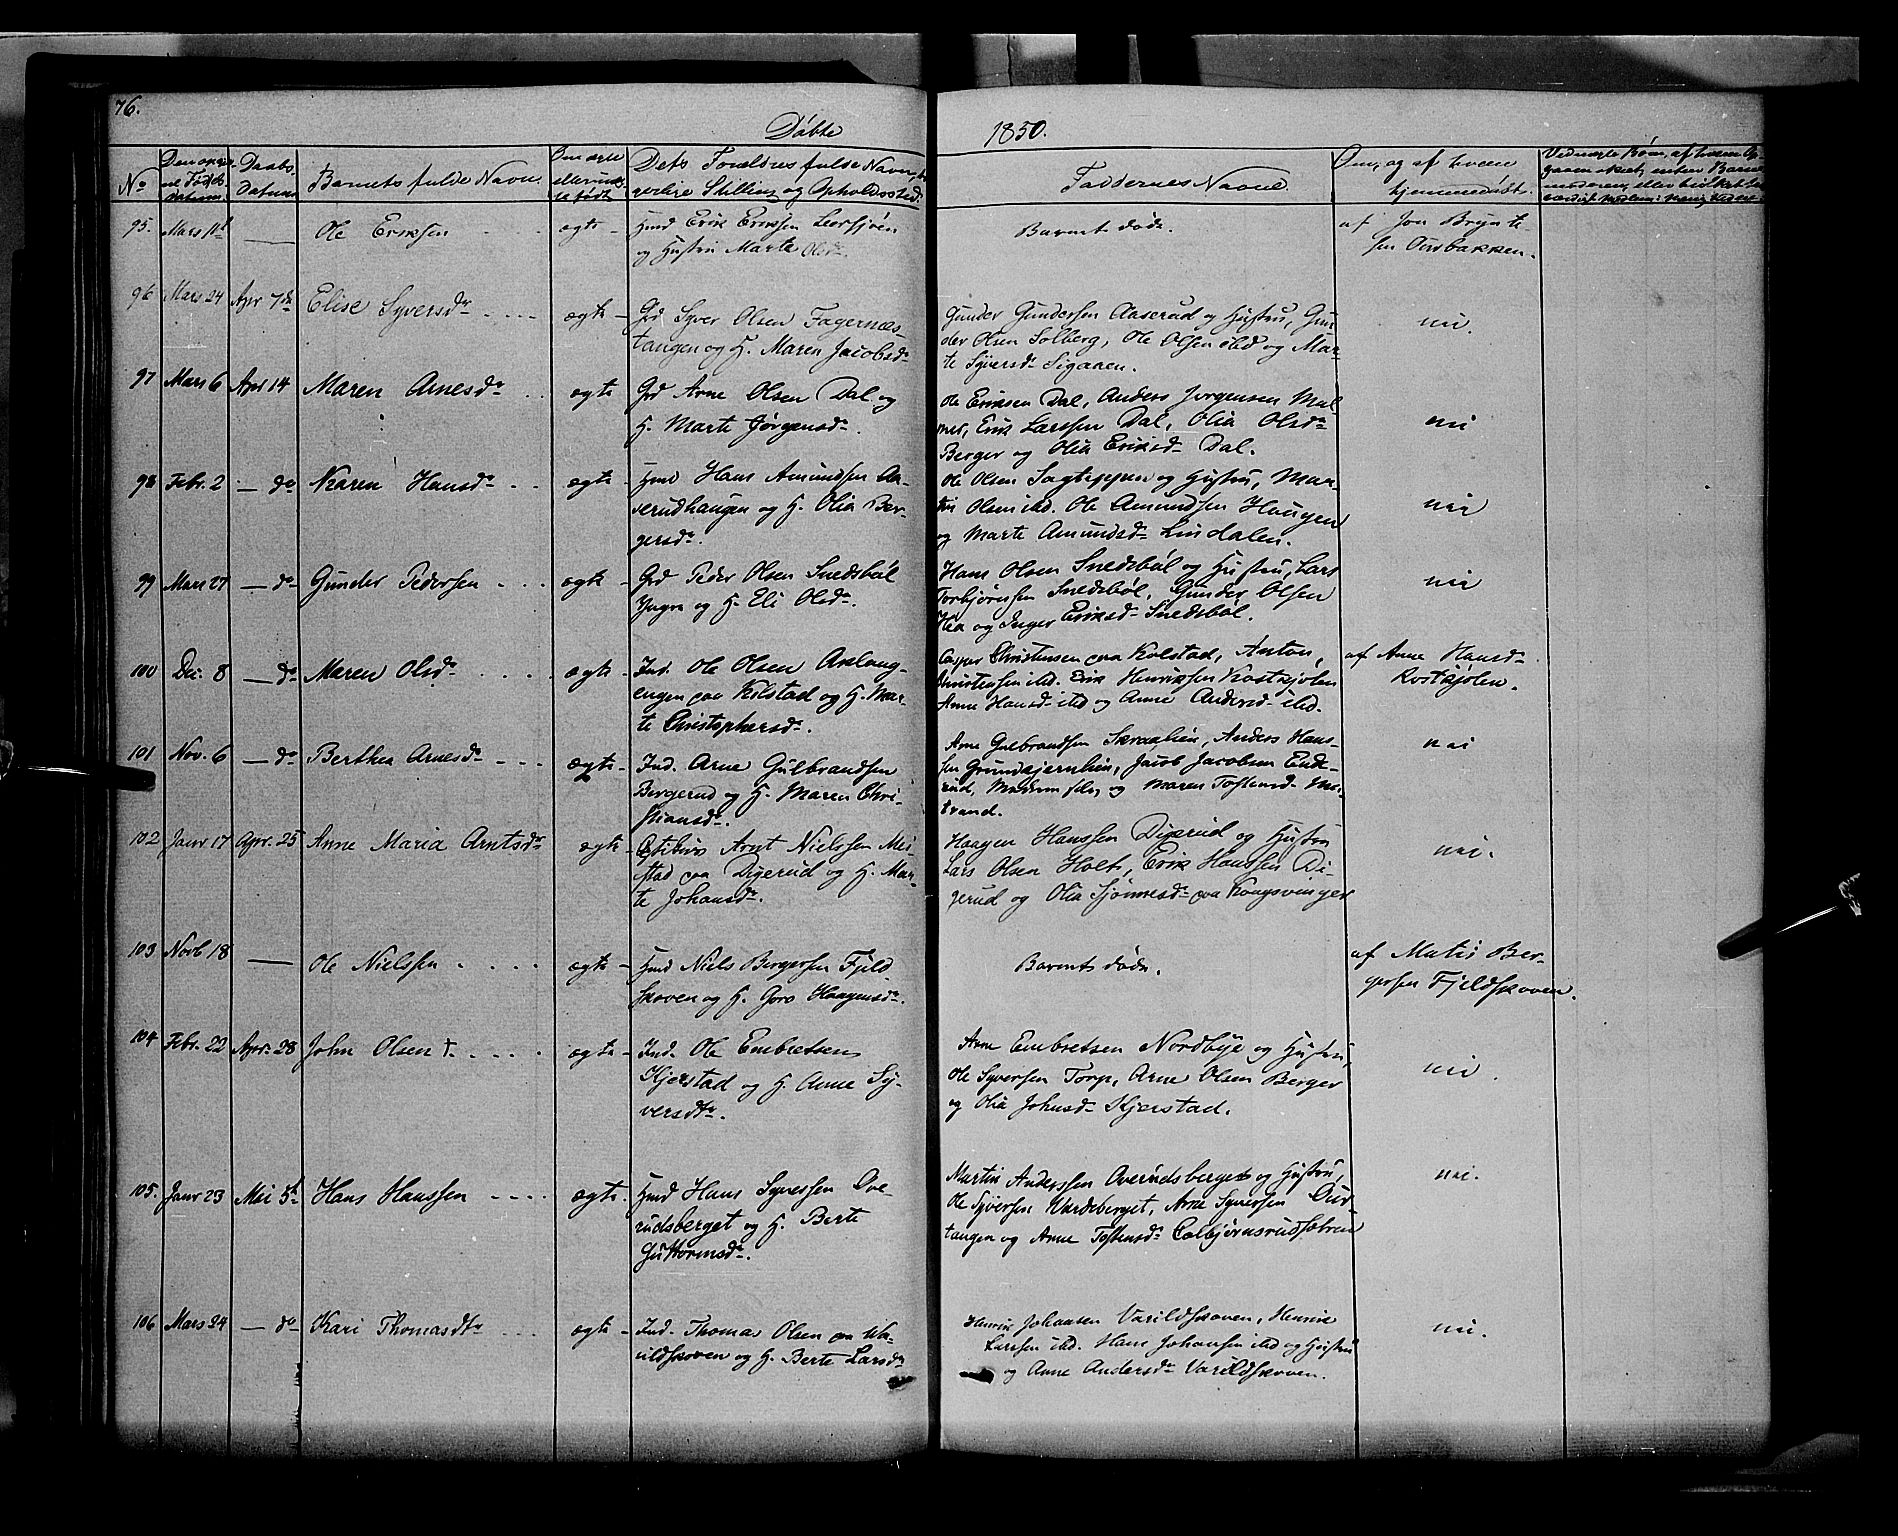 76.
Døbte
1850.
No
Daabs
Datum
Barnets fulde Navn.
Dets Forældres fulde Navn, bor
gerlige Stilling og Opholdssted.
Faddernes Navne.
Om, og af hvem
hjemmedøbt.
95. Mars 11t — Ole Eriksen ægte Hmd Erik Eriksen Leersjøen
og Hustru Marte Olsdr.
Barnet døde.
af Jon Brynte
sen
96 Mars 24 Apr 7de Elise Syversdr ægte Grd Syver Olsen Fagernæs-
tangen og H. Maren Jacobsdr
Gunder Gundersen Aaserud og Hustru, Gun
der Olsen Solberg, Ole Olsen ibd og Mar-
te Syversdr Sigaaen.
nei.
97 Mars 6 Apr 14 Maren Arnesdr ægte Grd Arne Olsen Dal og
H. Marte Jørgensdr.
Ole Eriksen Dal, Anders Jørgensen Mal
mer, Erik Larssen Dal, Olia Olsdr
Berger og Olia Eriksdr Dal.
nei
98 Febr. 2 — do Karen Hansdr ægte Hmd Hans Amundsen Aa-
serudhaugen og H. Olia Ber-
gersdr.
Ole Olsen Sagteppen og Hustru, Mar-
tin Olsen ibd. Ole Amundsen Haugen
og Marte Amundsdr Lindalen.
nei
99 Mars 27 — do Gunder Pedersen ægte Grd Peder Olsen Snedsbøl
Yngre og H. Eli Olsdr.
Hans Olsen Snedsbøl og Hustru, Lars
Torbjørnsen Snedsbøl, Gunder Olsen
og Inger Eriksdr Snedsbøl.
nei
100 De. 8 — do Maren Olsdr ægte Ind. Ole Olsen Aslaug-
engen paa Kolstad og H. Mar-
te Christophersdr.
Casper Christensen paa Kolstad, Anton
Christensen ibd. Erik Henriksen Kostkjølen
Anne Hansdr ibd og Anne Andersdr ibd.
af Anne Hansdr
Kostkjølen.
101 Nov. 6 — do Berthea Arnesdr ægte Ind. Arne Gulbrandsen
Bergerud og H. Maren Chri-
stiansdr.
Arne Gulbrandsen Skraalien, Anders Hans-
sen Grundkjernlien, Jacob Jacobsen Ende-
rud, og Maren Tostensdr
strand.
nei
102 Janr 17 Apr. 25 Anne Maria Arntsdr ægte Arnt Nielssen Mei-
stad paa Digerud og H. Mar-
te Johansdr.
Haagen Hanssen Digerud og Hustru
Lars Olsen Holt, Erik Hanssen Di-
gerud og Olia paa Kongsvinger
nei.
103 Novb 18 — Ole Nielssen ægte Hmd Niels Bergersen Fjeld
skoven og H. Goro Haagensdr.
Barnet døde.
af Matis Ber-
gersen Fjeldskoven.
104 Febr. 22 Apr. 28 John Olsen † ægte Ind. Ole Embretsen
Kjerstad og H. Anne Sy-
versdtr.
Arne Embretsen Nordbye og Hustru,
Ole Syversen Torp, Arne Olsen Berger
og Olia Johnsdr Kjerstad.
nei
105. Janr 23 Mai 5t Hans Hanssen ægte Hmd Hans Syverssen Ove-
rudsberget og H. Berte
Guttormsdr.
Martin Anderssen Overudsberget og Hustru,
Ole Syversen Vardeberget, Arne Syverssen
tangen og Anne Tostensdr Colbjørnsrudsætren
nei.
106 Mars 24 — do Kari Thomasdtr ægte Ind. Thomas Olsen paa Va-
rildskoven og H. Berte Larsdr
Henrik Johansen Varildskoven, Henrik
Larssen ibd. Hans Johansen ibd og Hustru
og Anne Andersdr Varildskoven.
nei.